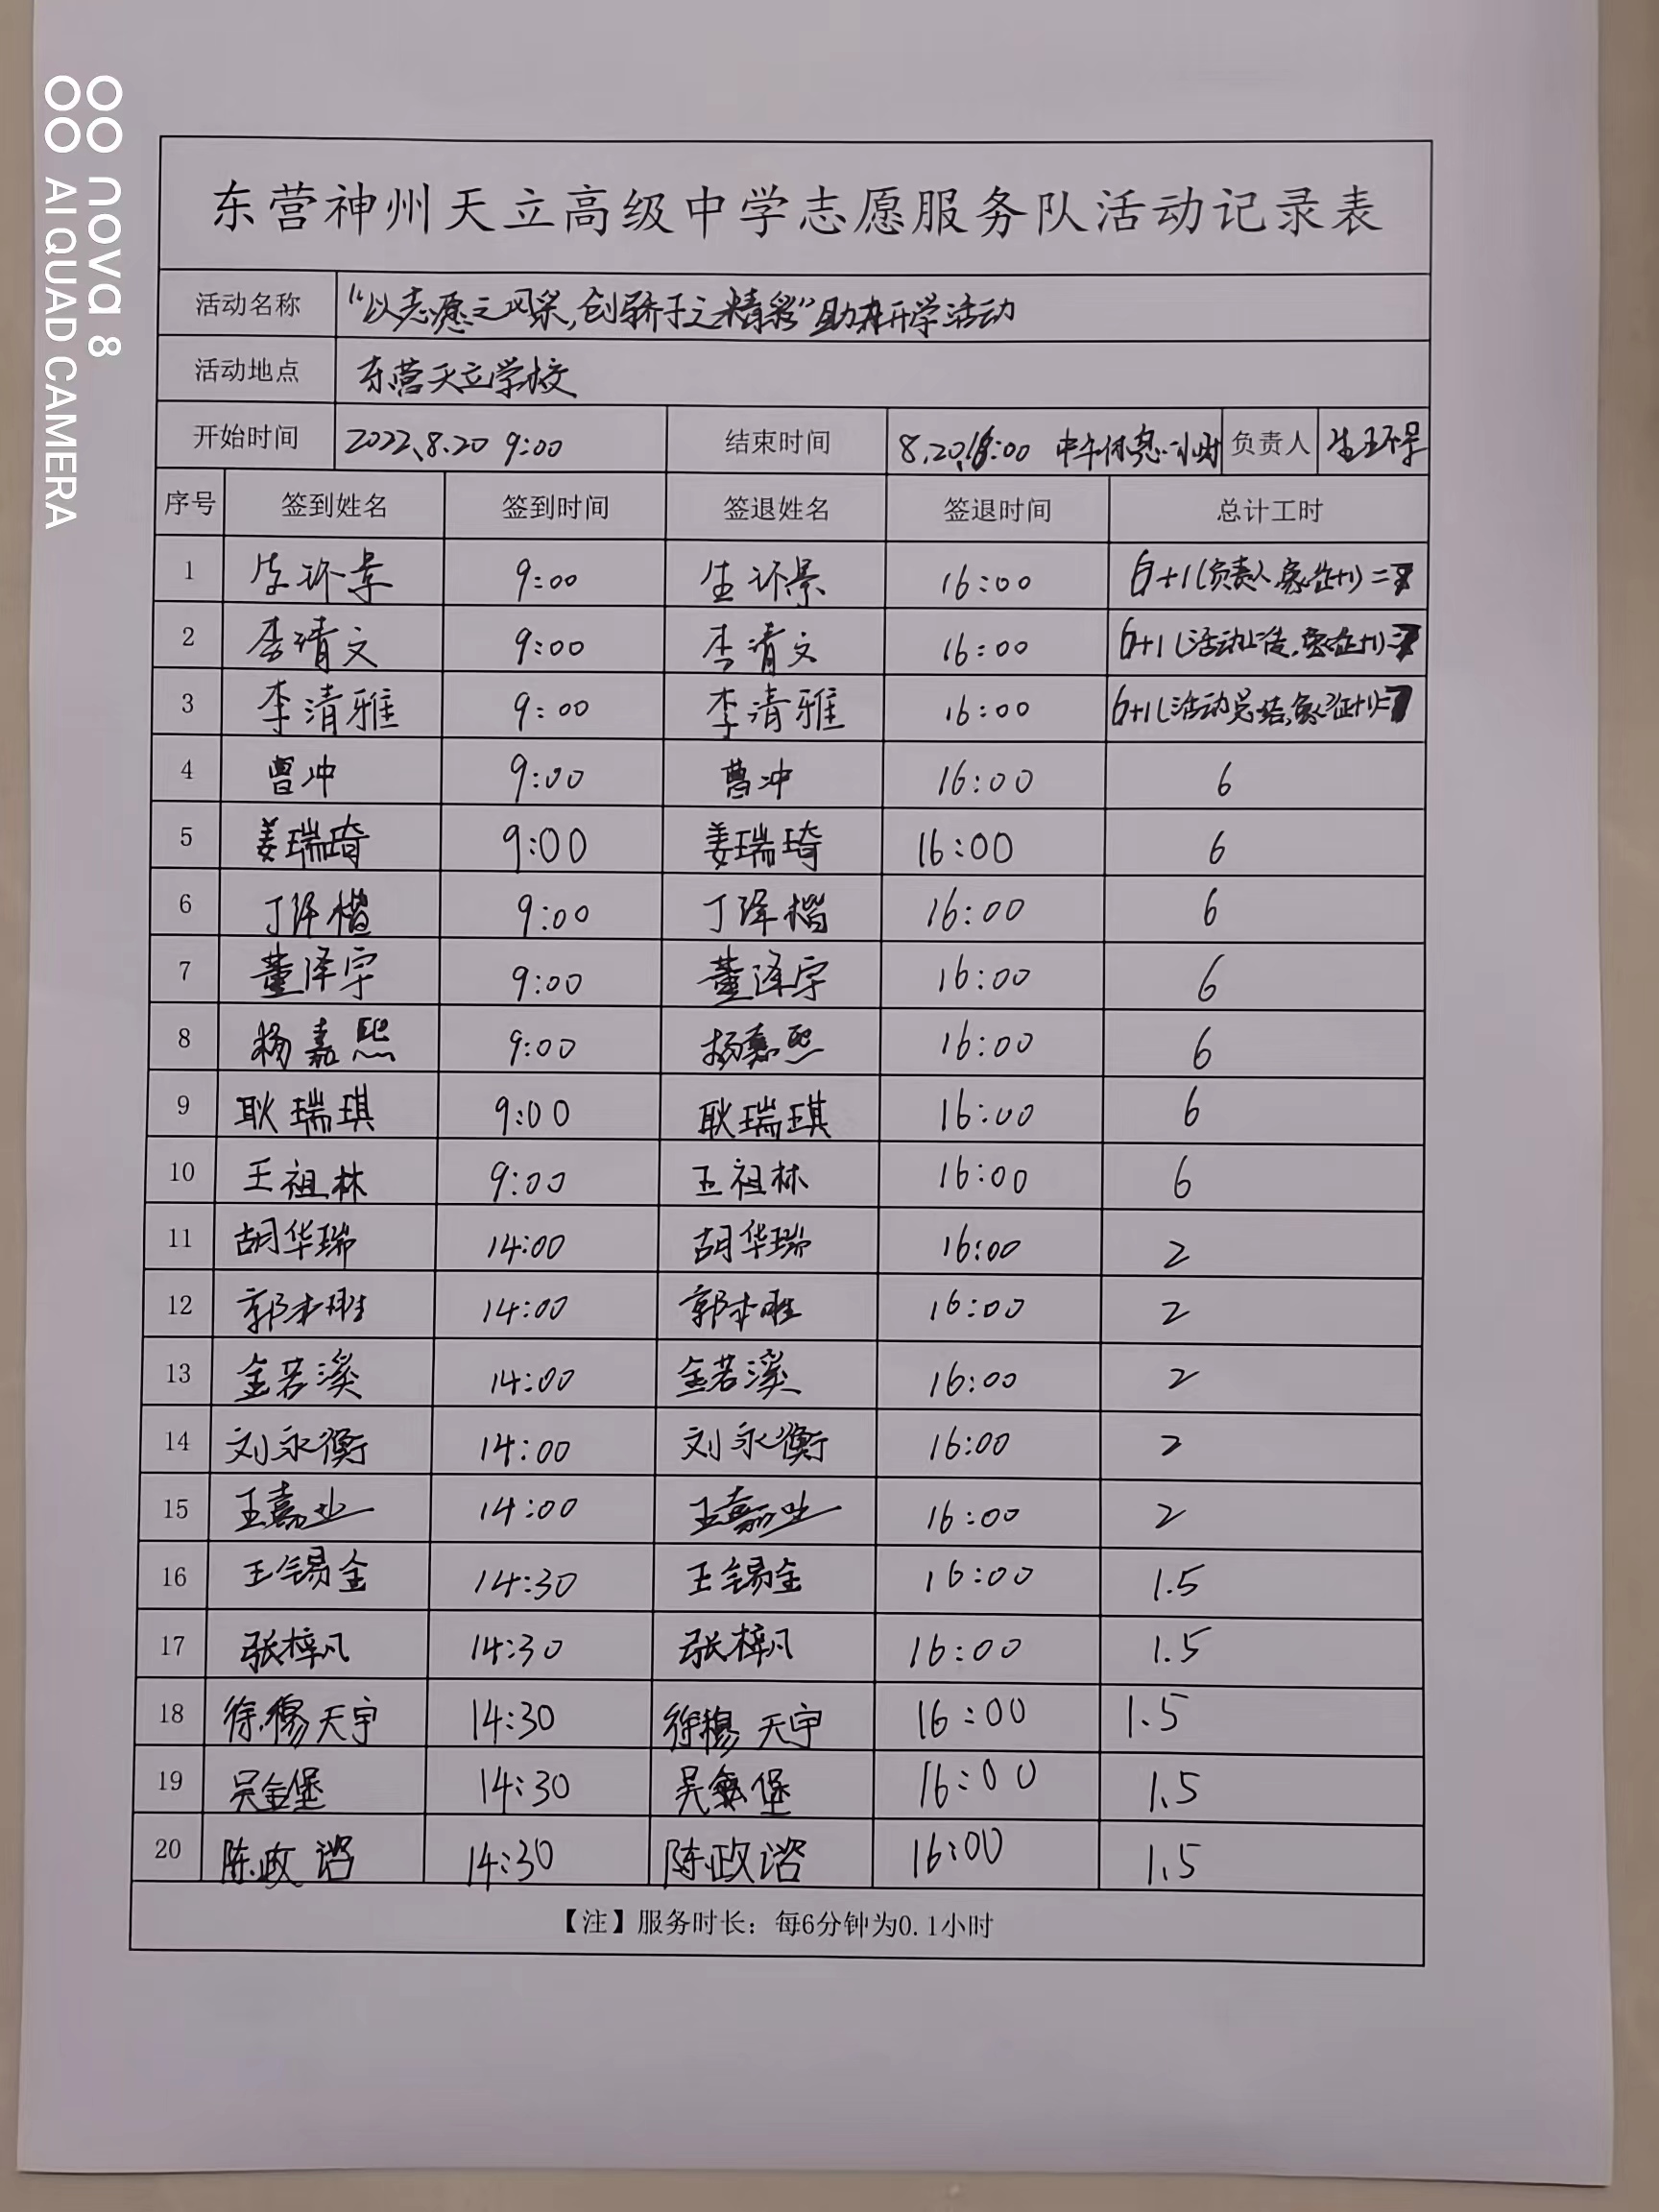 nova 8
AI QUAD CAMERA
东营神州天立高级中学志愿服务队活动记录表
活动名称 “以志愿之风采,创骄子之精彩”助力开学活动
活动地点 东营天立学校
开始时间 2022.8.20 9:00 结束时间 8.20.16:00 中午休息一小时 负责人 生环景
序号 签到姓名 签到时间 签退姓名 签退时间 总计工时
1 生环景 9:00 生环景 16:00 6+1(负责人 +1)=7
2 李清文 9:00 李清文 16:00 6+1(活动 +1)=7
3 李清雅 9:00 李清雅 16:00 6+1(活动总结 +1)=7
4 曹冲 9:00 曹冲 16:00 6
5 姜瑞琦 9:00 姜瑞琦 16:00 6
6 丁泽楷 9:00 丁泽楷 16:00 6
7 董泽宇 9:00 董泽宇 16:00 6
8 杨嘉熙 9:00 杨嘉熙 16:00 6
9 耿瑞琪 9:00 耿瑞琪 16:00 6
10 王祖林 9:00 王祖林 16:00 6
11 胡华瑞 14:00 胡华瑞 16:00 2
12 郭本 14:00 郭本 16:00 2
13 金若溪 14:00 金若溪 16:00 2
14 刘永衡 14:00 刘永衡 16:00 2
15 王嘉业 14:00 王嘉业 16:00 2
16 王锡金 14:30 王锡金 16:00 1.5
17 张梓凡 14:30 张梓凡 16:00 1.5
18 徐穆天宇 14:30 徐穆天宇 16:00 1.5
19 吴金堡 14:30 吴金堡 16:00 1.5
20 陈政谘 14:30 陈政谘 16:00 1.5
【注】服务时长：每6分钟为0.1小时